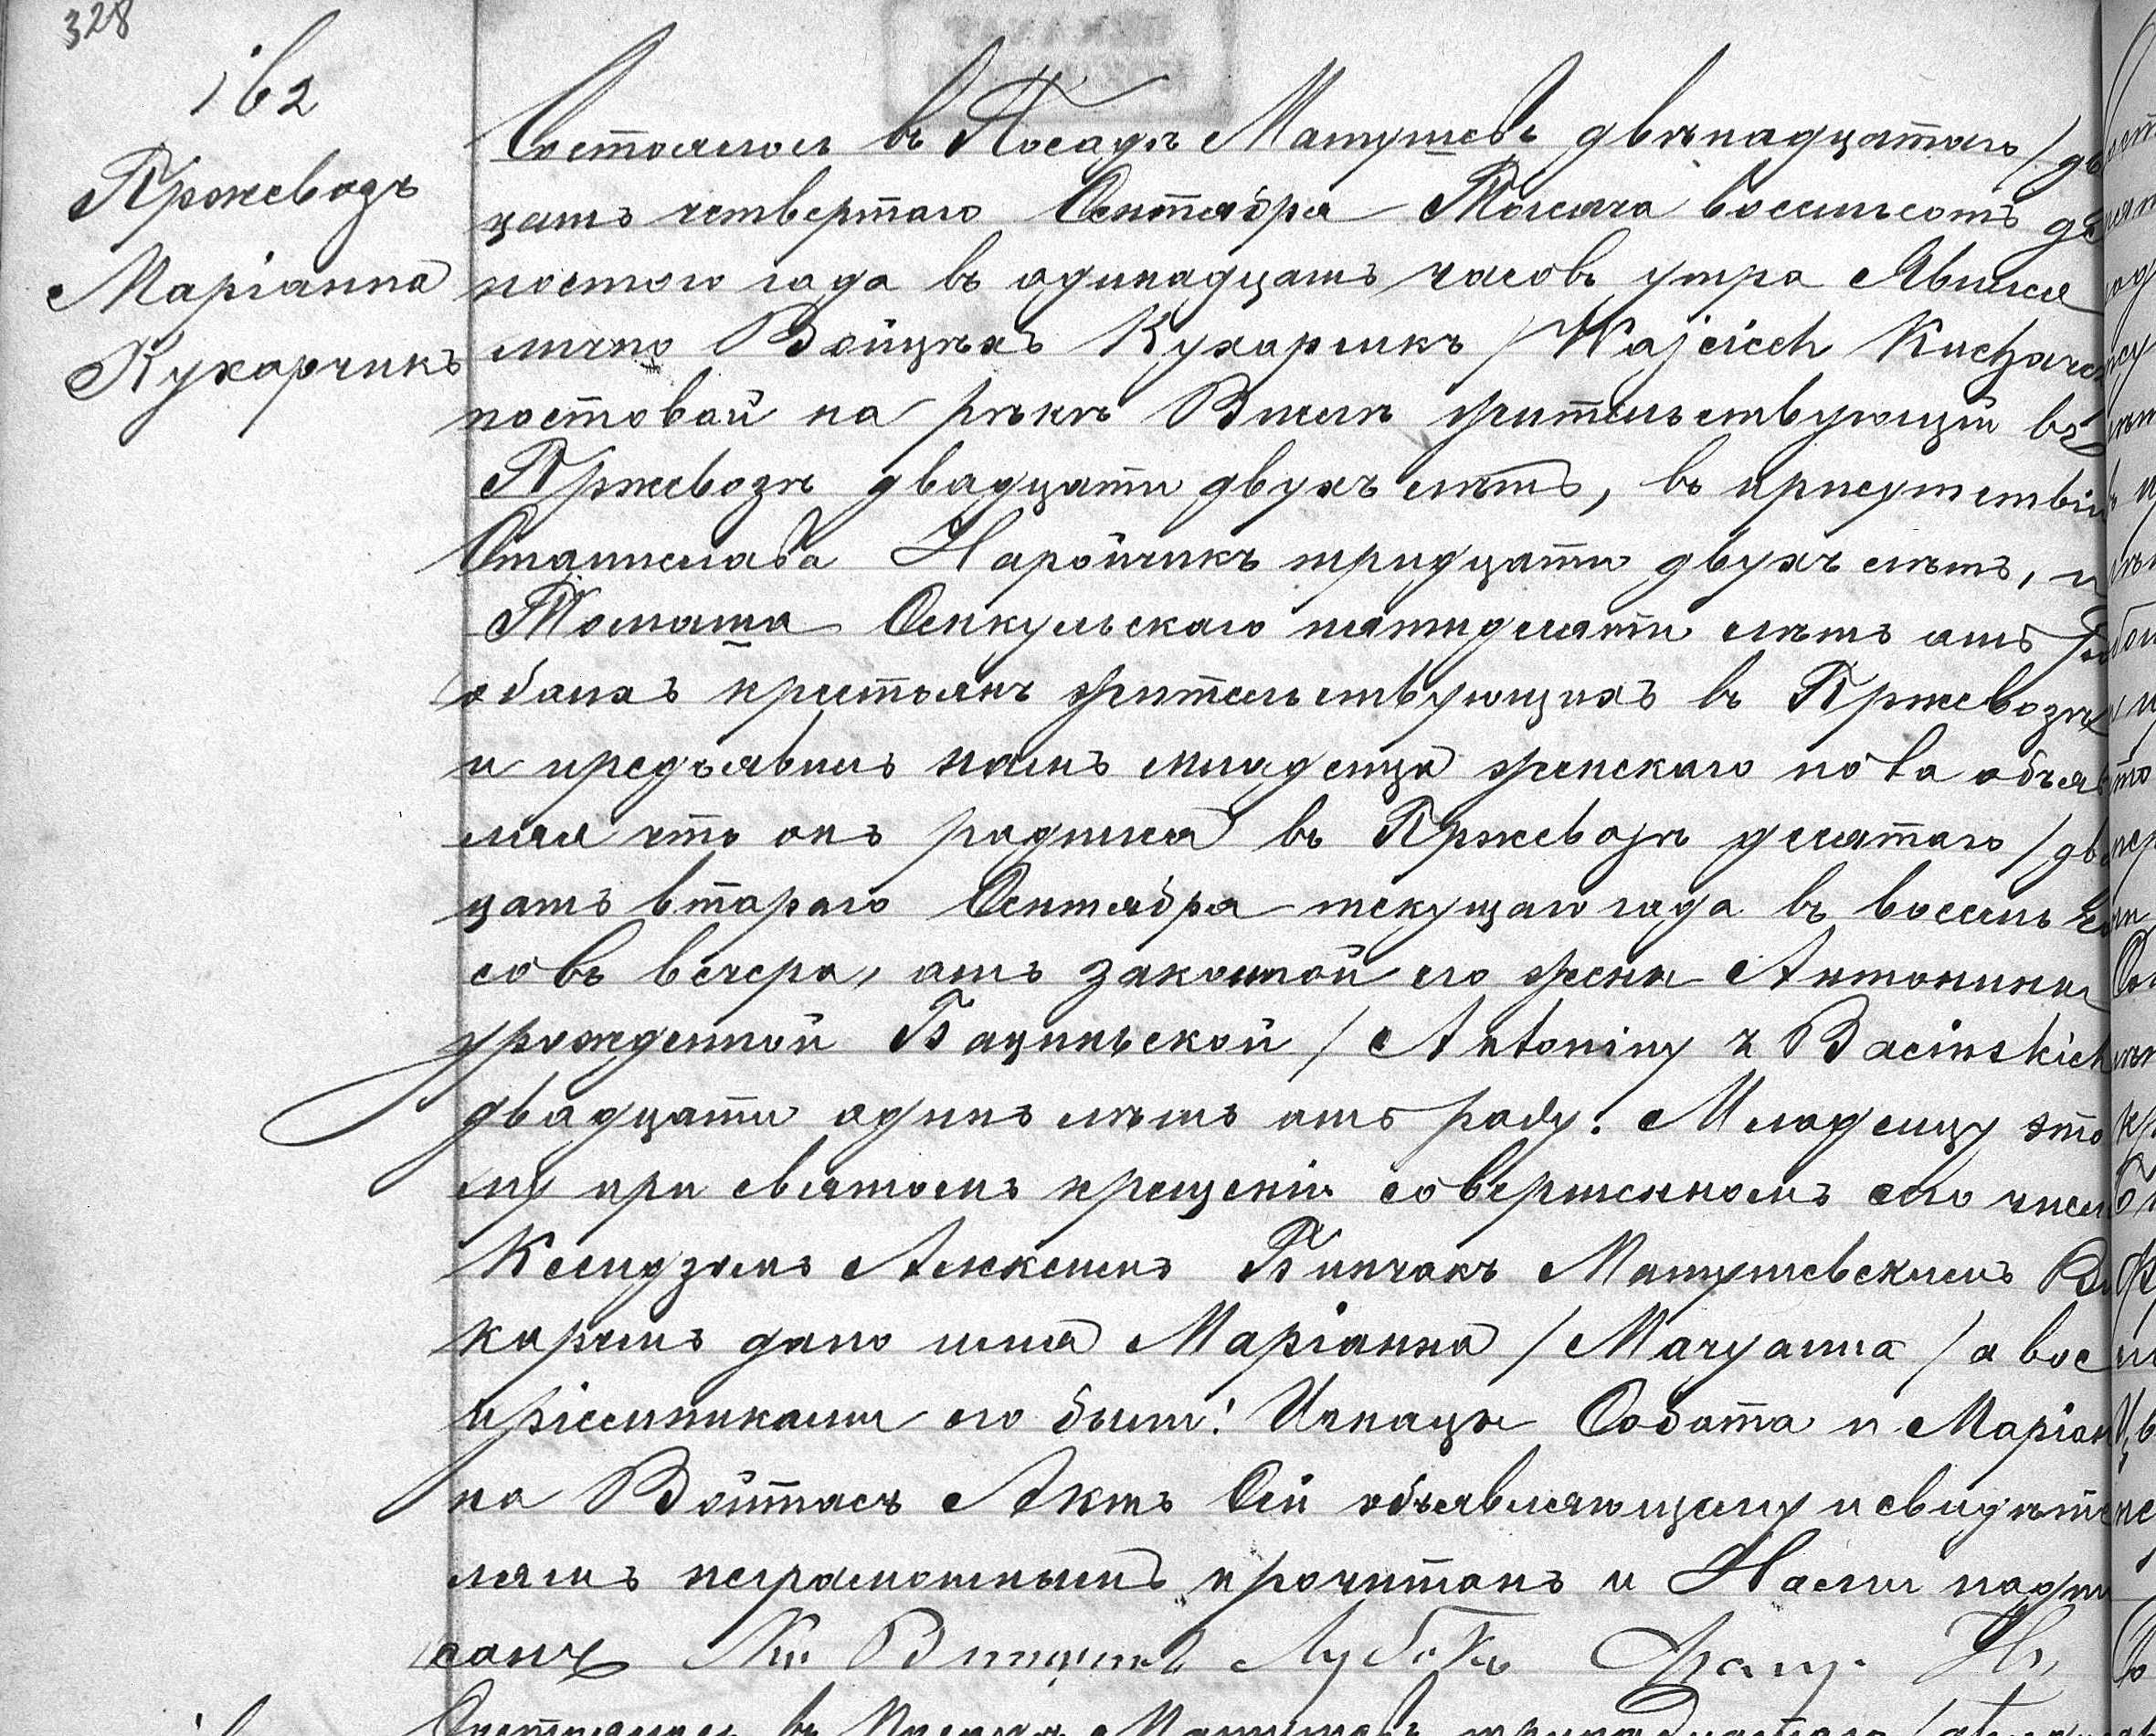 328
162
Пржевозъ
Маріанна
Кухарчикъ
Состоялось въ Посадѣ Матушевѣ двѣнадцатаго / два
цать четвертаго Сентября Тысяча восемьсотъ де
ностого года въ одинадцать часовъ утра Явился
лично Войцѣхъ Кухарчикъ / Wojciech Kucharcz
постовой на рѣкѣ Вислѣ жительствующій въ
Пржевозѣ двадцати двухъ лѣтъ, въ присутствіи
Станислава Наройчикъ тридцати двухъ лѣтъ, и
Томаша Секульскаго пятидесяти лѣтъ отъ
обаихъ крестьянъ жительствующихъ въ Пржевозѣ
и предъявилъ намъ младенца женскаго пола объяв
ляя что онъ родился въ Пржевозѣ десятаго / два
цать втараго Сентября текущаго года въ восемь ча
совъ вечера, отъ законной его жены Антонины
урожденной Бациньской / Antoniny z Bacinskich
двадцати одинъ лѣтъ отъ роду. Младенцу это
му при святомъ крещеніи совершенномъ сего числа
Ксендзомъ Алексымъ Бинчакъ Матушевскимъ Ви
каріемъ дано имя Маріанна / Maryanna / а вос
пріемниками его были: Игнацы Собота и Маріан
на Войтасъ Актъ Сій объявляющему и свидѣте
лямъ неграмотнымъ прочитанъ и Нами подпи
санъ Кс.
Состоялось въ Посадѣ Матушевѣ тринадцатаго